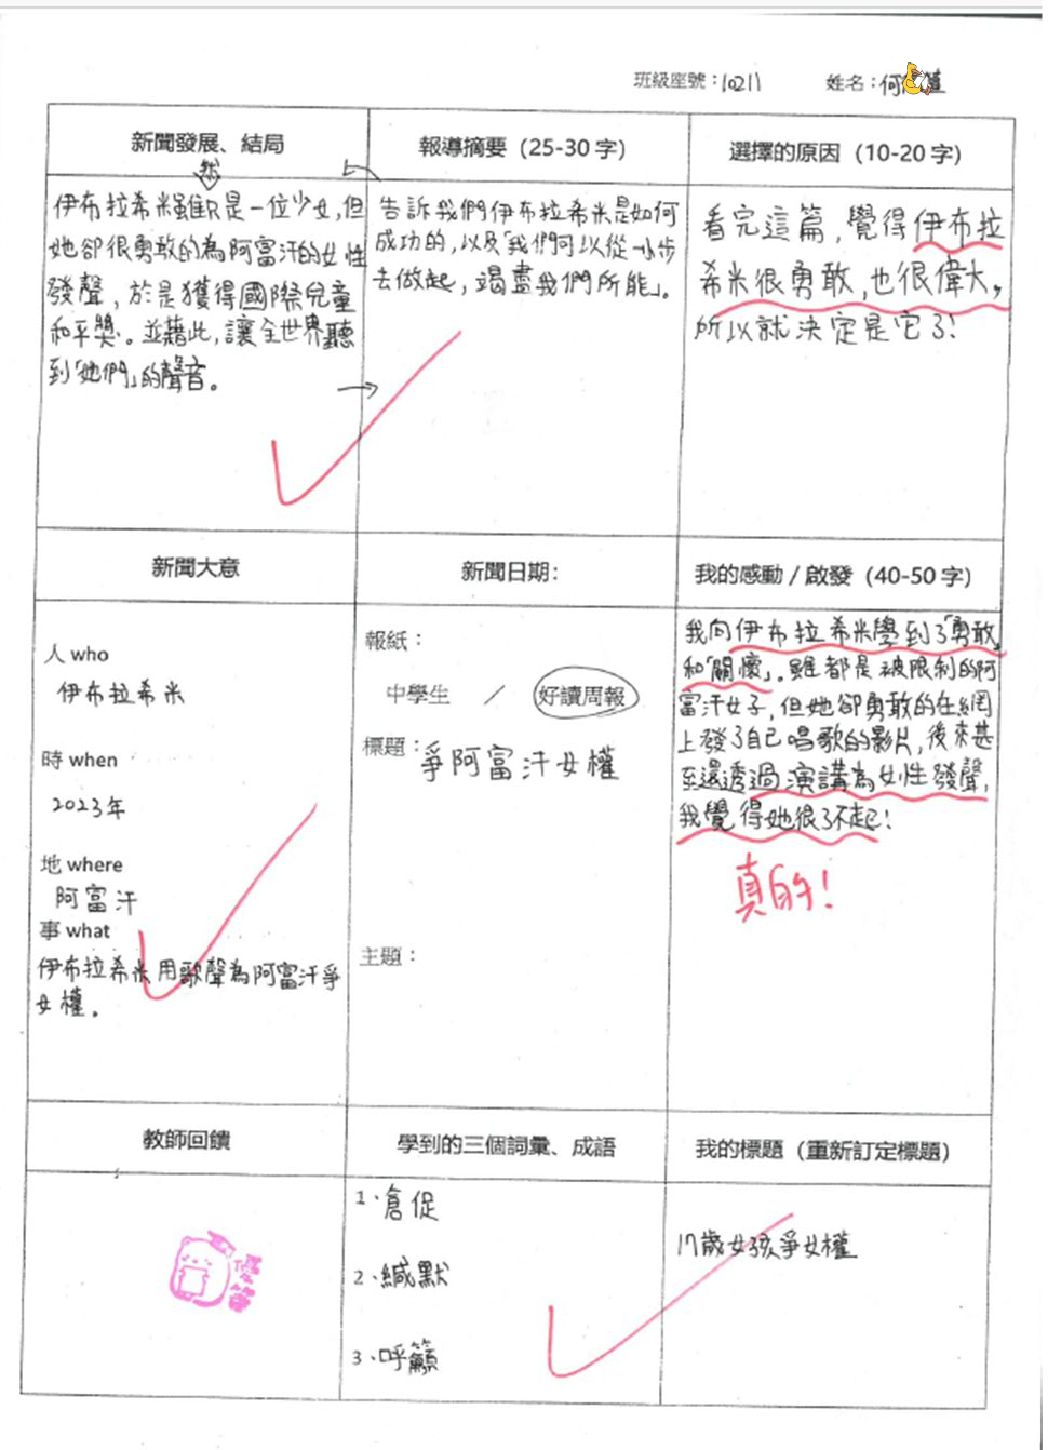 班級座號：10211 姓名：何
新聞發展、結局
報導摘要（25-30 字）
選擇的原因（10-20 字）
然
伊布拉希米雖只是一位少女，但
她卻很勇敢的為阿富汗的女性
發聲，於是獲得國際兒童
和平獎。並藉此，讓全世界聽
到「她們」的聲音。
告訴我們伊布拉希米是如何
成功的，以及「我們可以從一小步
去做起，竭盡我們所能」。
看完這篇，覺得伊布拉
希米很勇敢，也很偉大，
所以就決定是它了！
新聞大意
新聞日期：
我的感動／啟發（40-50 字）
人 who
伊布拉希米
時 when
2023年
地 where
阿富汗
事 what
伊布拉希米用歌聲為阿富汗爭
女權。
報紙：
中學生 ／ 好讀周報
標題：爭阿富汗女權
主題：
我向伊布拉希米學到了「勇敢」
和「關懷」。雖都是被限制的阿
富汗女子，但她卻勇敢的在網
上發了自己唱歌的影片，後來甚
至還透過演講為女性發聲，
我覺得她很了不起！
真的！
教師回饋
學到的三個詞彙、成語
我的標題（重新訂定標題）
優
1、倉促
2、緘默
3、呼籲
17歲女孩爭女權